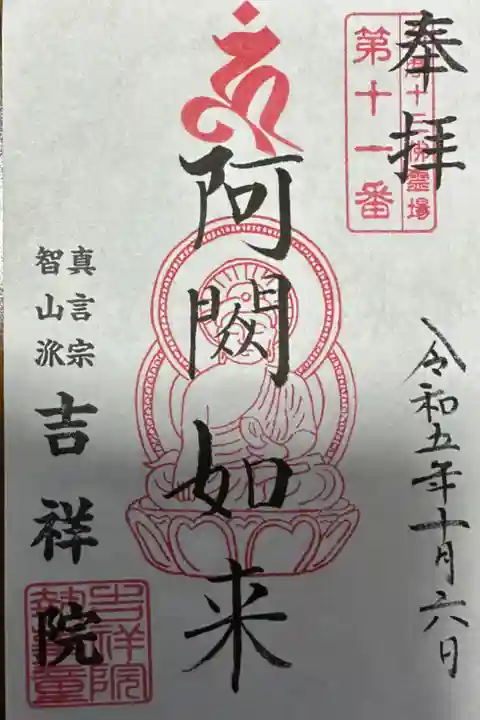 奉拝
十三佛霊場
第十一番
令和五年十月六日
阿閦如来
真言宗
智山派
吉祥院
吉祥院